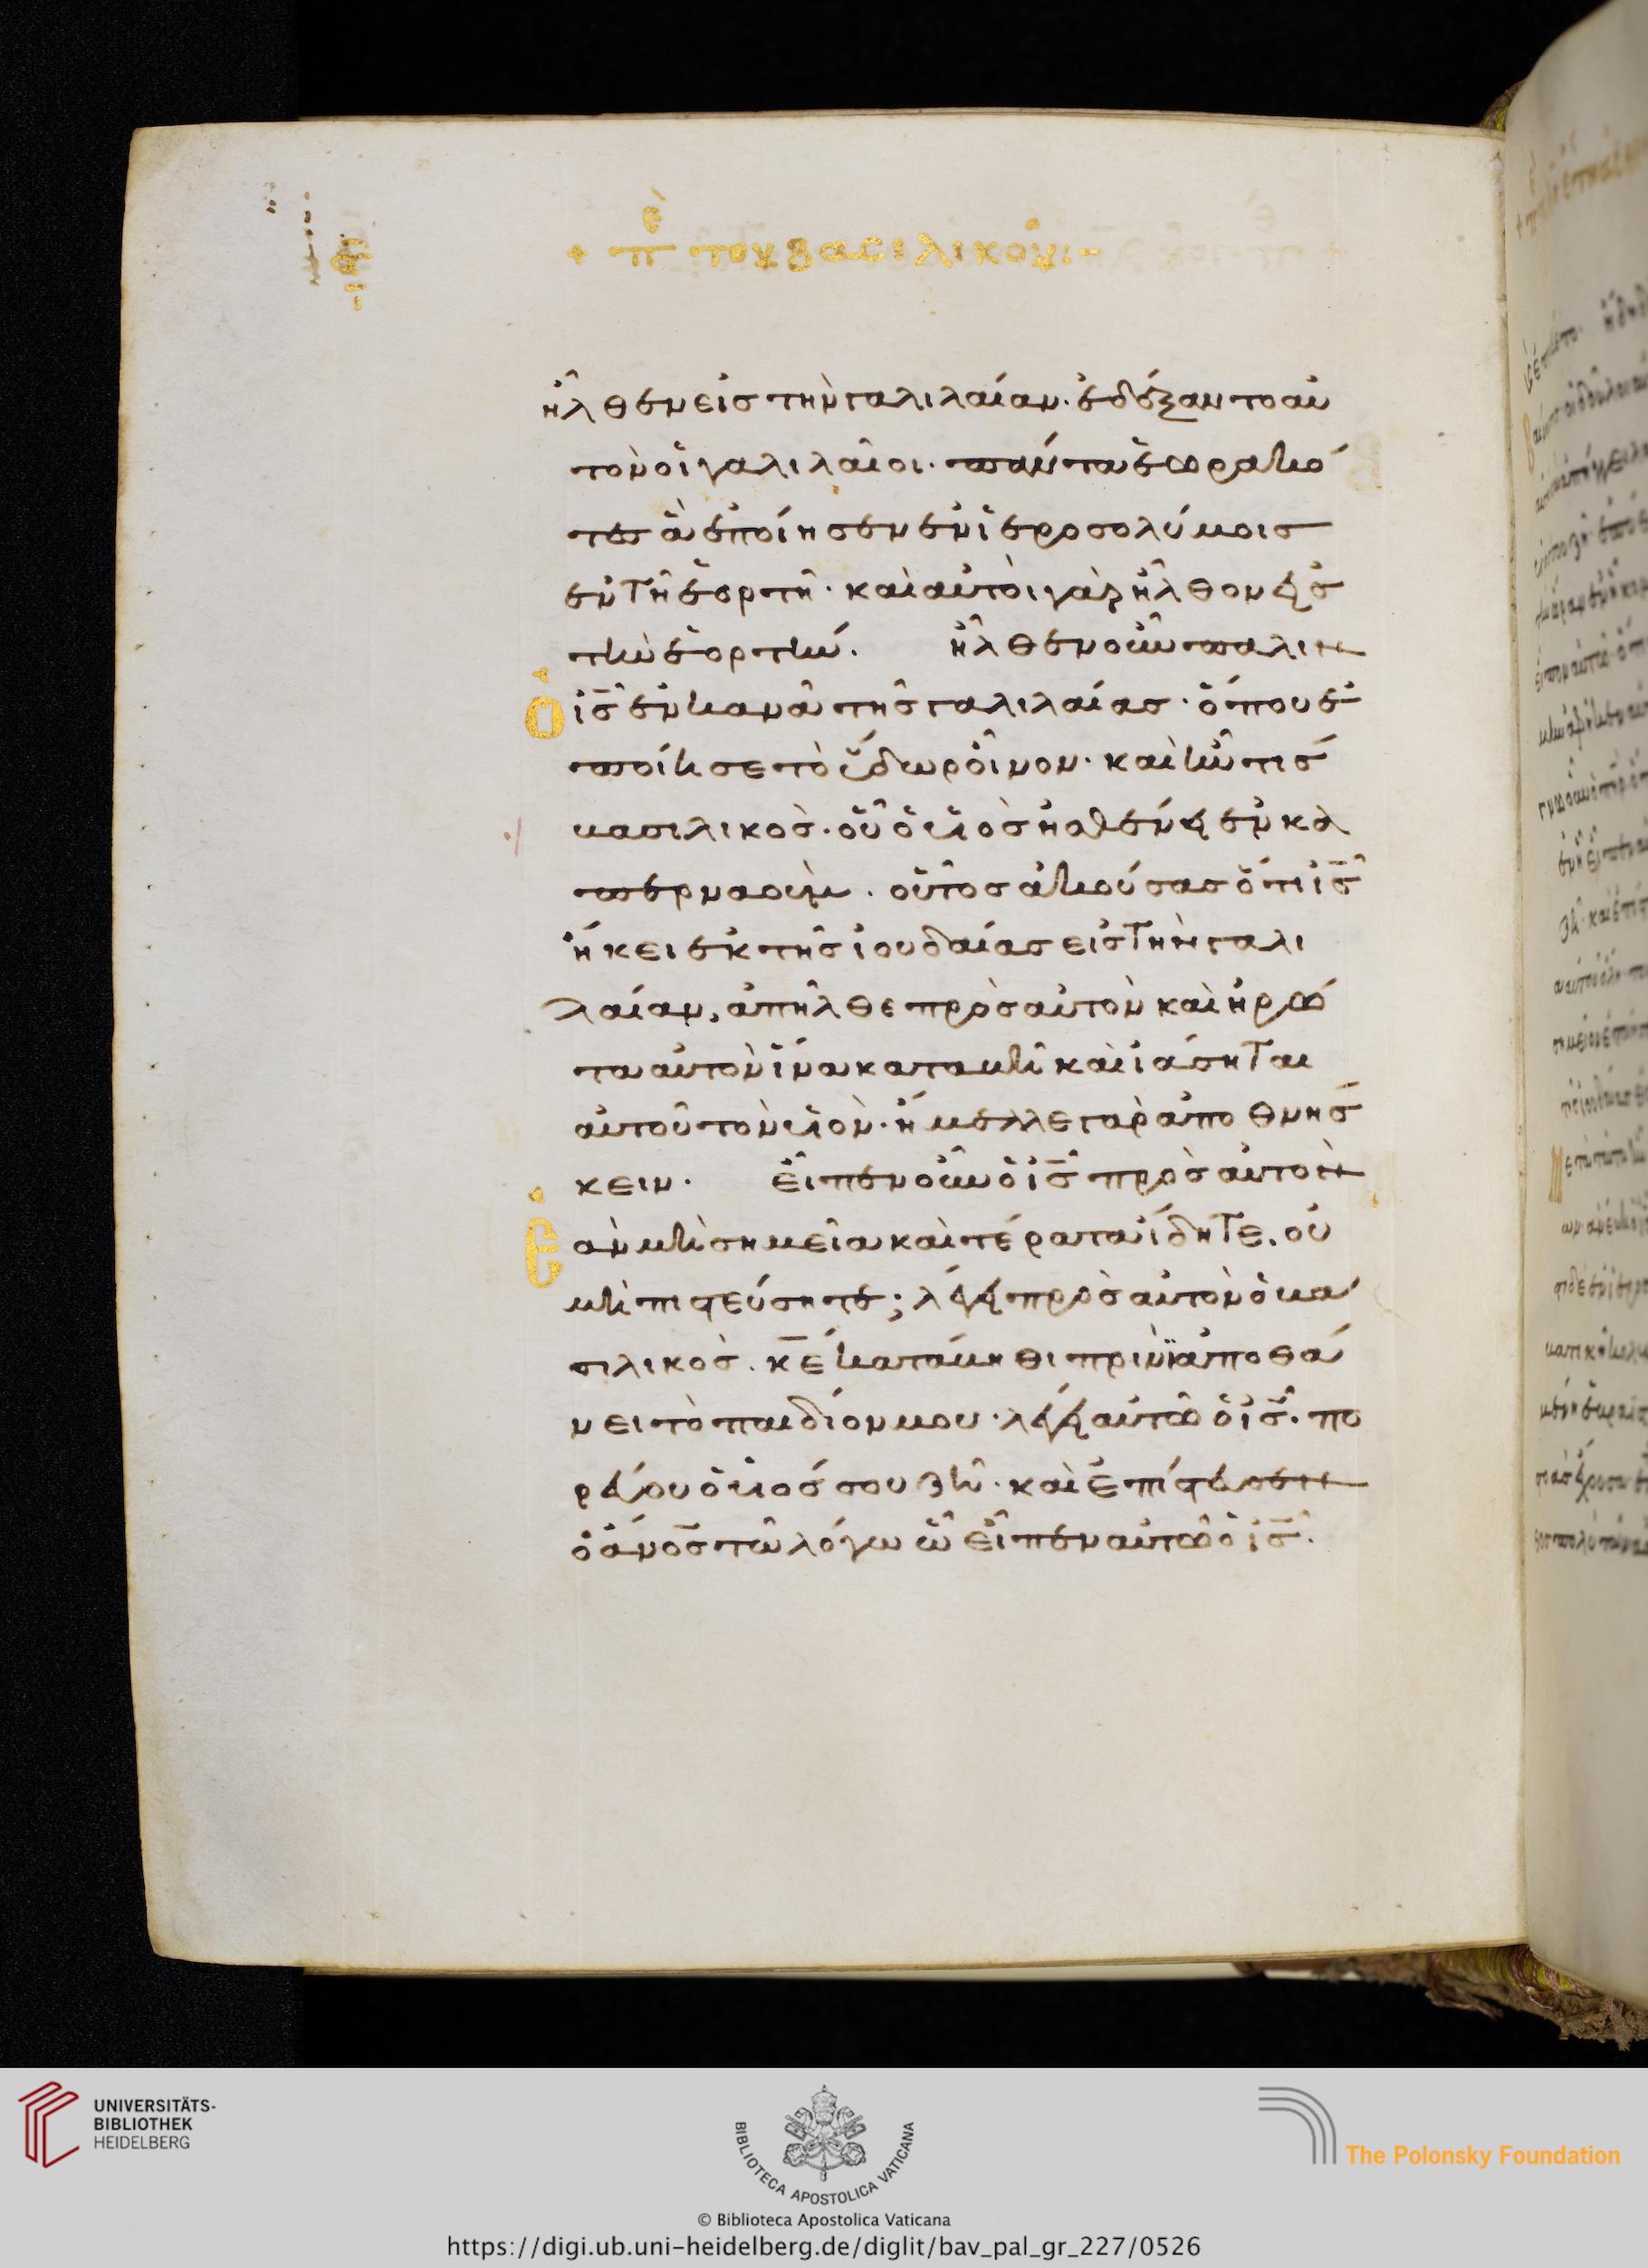 + πε του βασιλικοῦ:-
ε
ἦλθεν εἰς τὴν γαλιλαίαν. ἐδέξαντο αὐ
τὸν οἱ γαλιλαῖοι. πάντα ἑωρακό
τες ἃ ἐποίησεν ἐν ἱεροσολύμοις
ἐν τῆ ἑορτῆ. καὶ αὐτοὶ γὰρ ἦλθον εἰς
τὴν ἑορτήν. ἦλθεν οὖν πάλιν
ὁ ἰς̅ ἐν κανᾶ τῆς γαλιλαίας. ὅπου ἐ
ποίησε τὸ ὕδωρ οἶνον. καὶ ἦν τίς
βασιλικὸς. οὗ ὁ υἱὸς ἠσθένει ἐν κα
περναούμ. οὗτος ἀκούσας ὅτι ἰς̅
ἥκει ἐκ τῆς ἰουδαίας εἰς τὴν γαλι
λαίαν, ἀπῆλθε πρὸς αὐτὸν καὶ ἠρώ
τα αὐτὸν ἵνα καταβῆ καὶ ἰάσηται
αὐτοῦ τὸν υἱὸν. ἤμελλε γὰρ ἀποθνήσ
κειν. εἶπεν οὖν ὁ ἰς̅ πρὸς αὐτὸν
ἐὰν μὴ σημεῖα καὶ τέρατα ἴδητε. οὐ
μὴ πιστεύσητε; λέγει πρὸς αὐτὸν ὁ βα
σιλικὸς. κε̅ κατάβηθι πρινὴ ἀποθα
νεῖ τὸ παιδίον μου. λέγει αὐτῶ ὁ ἰς̅. πο
ρεύου ὁ υἱός σου ζῆ. καὶ ἐπίστευσεν
ὁ ἄνος̅ τῶ λόγω ὧ εἶπεν αὐτῶ ὁ ἰς̅.
UNIVERSITÄTS-
BIBLIOTHEK
HEIDELBERG
BIBLIOTECA APOSTOLICA VATICANA
The Polonsky Foundation
© Biblioteca Apostolica Vaticana
https://digi.ub.uni-heidelberg.de/diglit/bav_pal_gr_227/0526